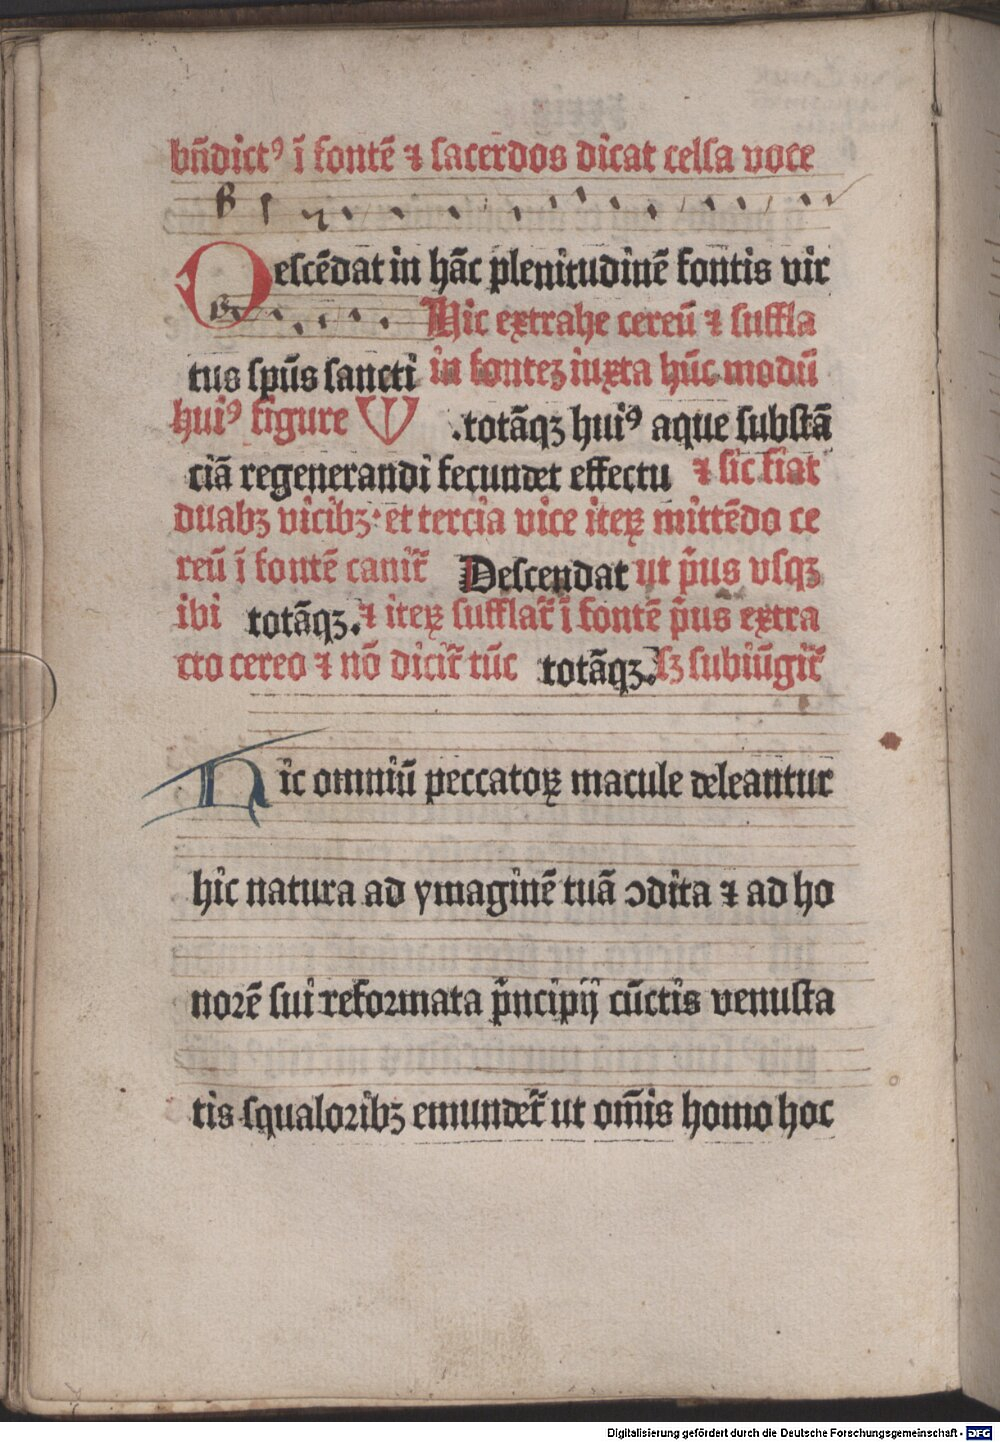 bn̄dictꝰ ī fontē ⁊ sacerdos dicat celsa voce
Descēdat in hāc plenitudinē fontis vir
Hic extrahe cereū ⁊ suffla
tus spūs sancti in fontez iuxta hūc modū
huiꝰ figure Ψ .totāqꝫ huiꝰ aque substā
ciā regenerandi fecundet effectu ⁊ sic fiat
duabꝫ vicibꝫ· et tercia vice iteꝝ mittēdo ce
reū ī fontē canit᷑ Descendat ut p̄us vsqꝫ
ibi totāqꝫ. ⁊ iteꝝ sufflat᷑ ī fontē p̄us extra
cto cereo ⁊ nō dicit᷑ tūc totāqꝫ. sꝫ subiūgit᷑
Hic omniū peccatoꝝ macule deleantur
hic natura ad ymaginē tuā ↄdita ⁊ ad ho
norē sui reformata p̄ncipij cūctis venusta
tis squaloribꝫ emundet᷑ ut om̄is homo hoc
Digitalisierung gefördert durch die Deutsche Forschungsgemeinschaft - DFG